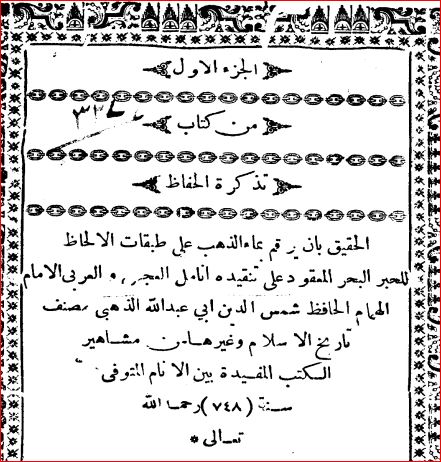 الجزء الاول
من كتاب
تذكرة الحفاظ
الحقيق بان يرقم بماء الذهب على طبقات الالحاظ
للحبر البحر المعقود على تنقيده انامل العجمى و العربى الامام
الهمام الحافظ شمس الدين ابى عبدالله الذهبى مصنف
تاريخ الاسلام وغيرها من مشاهير
الكتب المفيدة بين الانام المتوفى
سنة (٧٤٨) رحمه الله
تعالى *